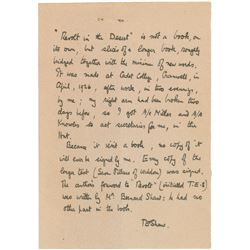 "Revolt in the Desert" is not a book, on
its own, but slices of a longer book, roughly
bridged together with the minimum of new words.
It was made at Cadet College, Cranwell, in
April, 1926, after work, in two evenings,
by me; my right arm had been broken two
days before, so I got A/c Miller and A/c
Knowles to act secretaries for me, in the
Hut.
Because it isn't a book, no copy of it
will ever be signed by me. Every copy of the
longer text (Seven Pillars of Wisdom) was signed.
The author's foreword to "Revolt" (initialled T.E.S)
was written by Mr Bernard Shaw: he had no
other part in the book.
TEShaw.